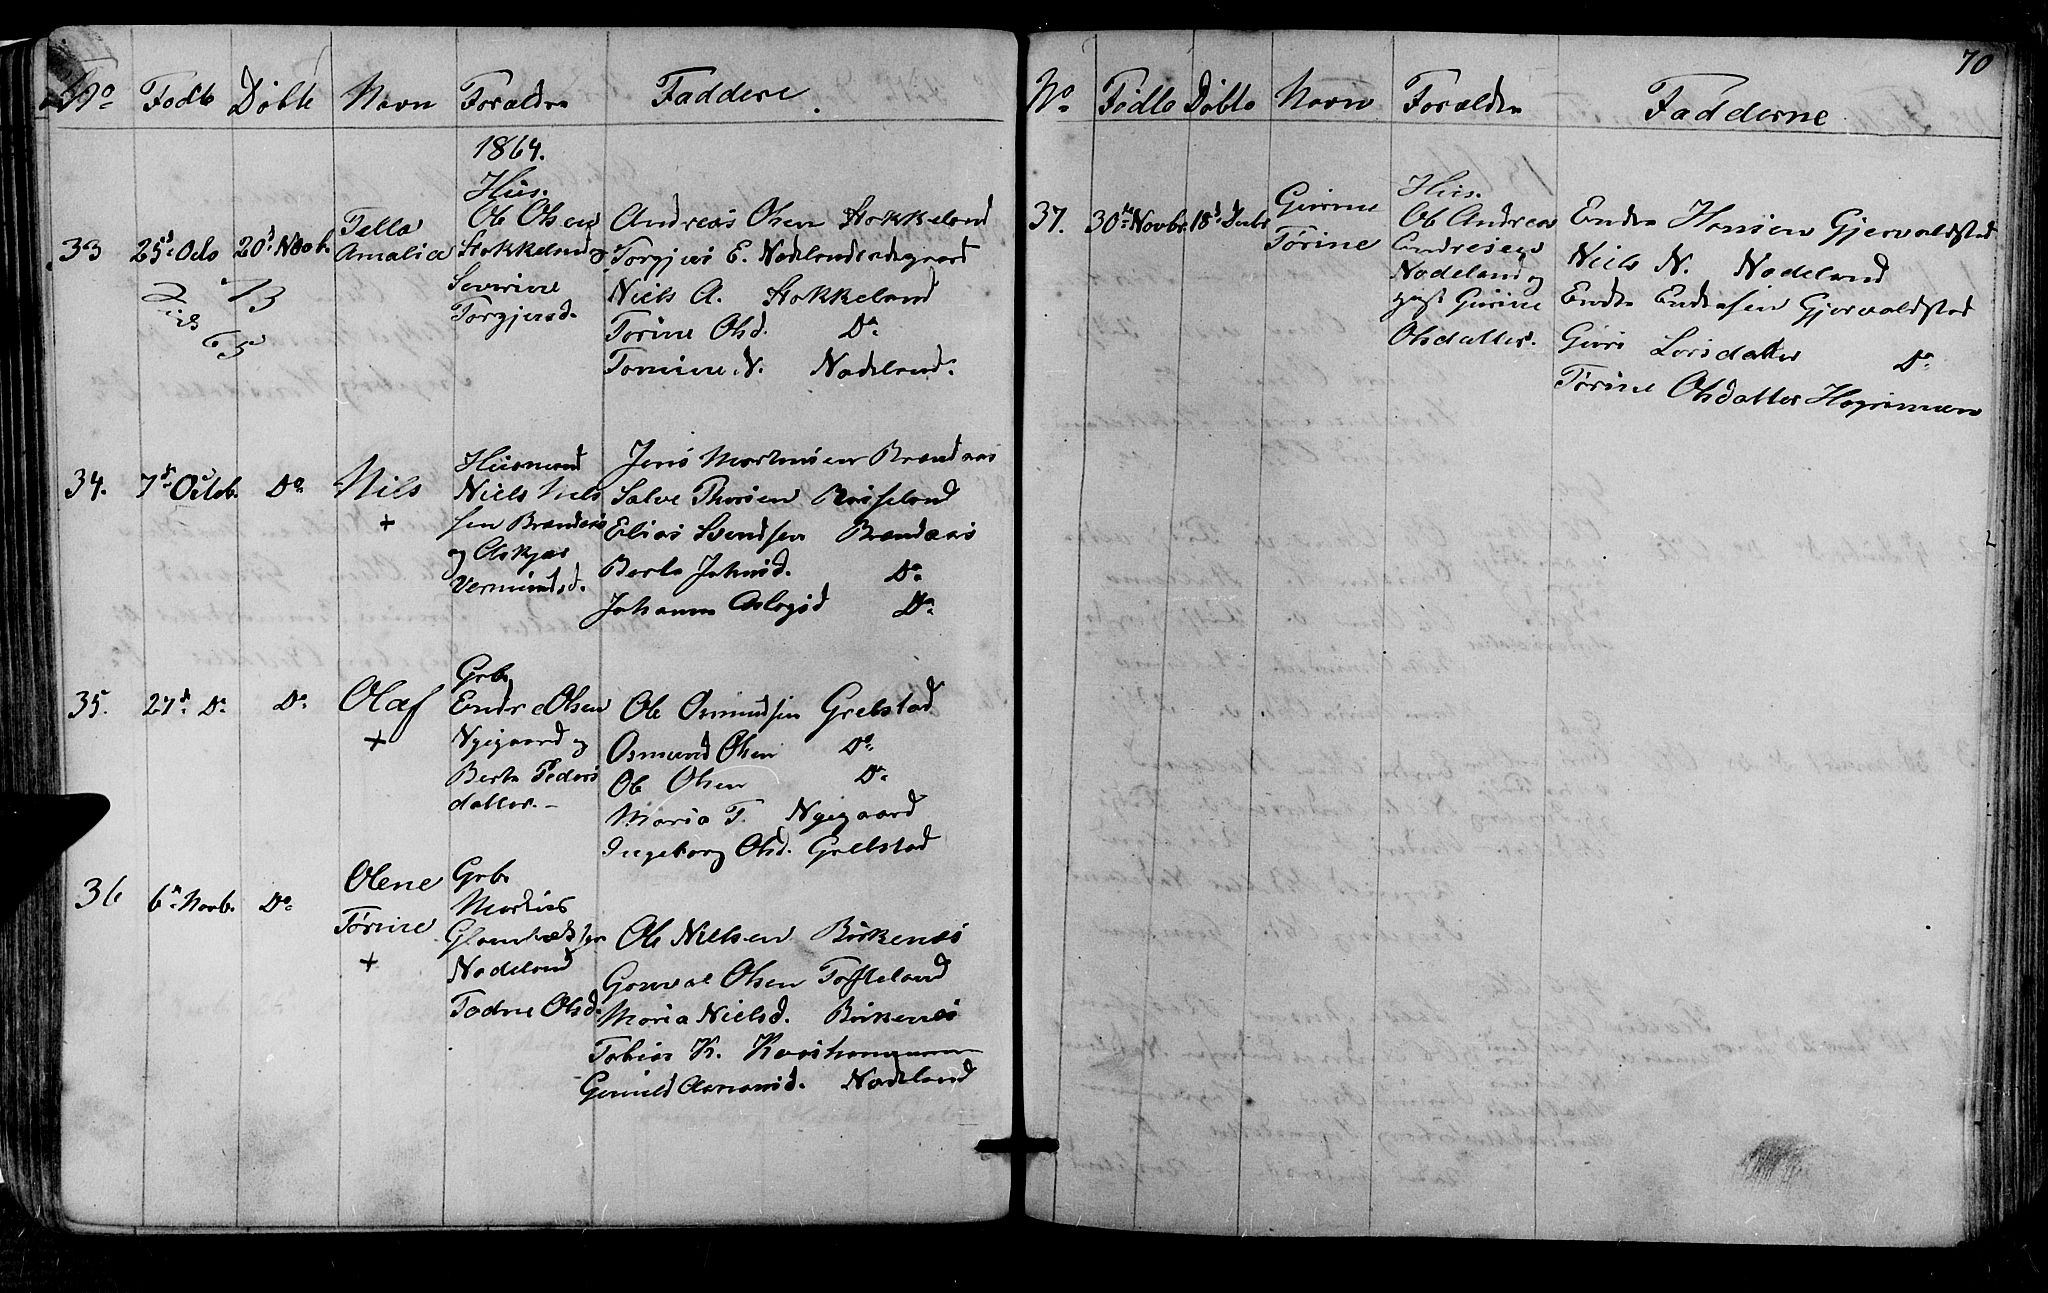 No Födte Döbte Navn Forældre Faddere.
1864.
33 25d Octo 20d Novb. Tella Amalia
Hus.
Ole Olsen
Stokkeland og
Severine
Torgjusd.
Andreas Olsen Stokkeland
Torgjus E. Nodelandendegaard
Niels A. Stokkeland
Torine Olsd. Do
Tomine N. Nodeland.
34. 7d Octob. Do Nils
+
Huusmand
Niels Niels
sen Brandaas
og Askjær
Vermundsd.
Jens Mortensen Brandaas
Salve Thorsen Røiseland
Elias Svendsen Brandaas
Berte Johnsd. Do
Johanne Aslagsd Do
35. 27d Do Do Olaf
+
Grb.
Endre Olsen
Nygaard og
Berte Peders
datter.
Ole Osmundsen Grelstad
Osmund Olsen Do
Ole Olsen Do
Maria T. Nygaard
Ingeborg Olsd. Grelstad
36 6te Novb. Do Olene
Törine
+
Grb.
Markus
Nodeland
Tadne Olsd.
Ole Nielsen Birkenes
Gonval Olsen Tofteland
Maria Nielsd. Birkenes
Tobias K.
Gunild Aanonsd. Nodeland
70
No Födte Döbte Navn Forældre Fadderne
37. 30te Novbr. 18d Decbr Gurine
Törine
Hus.
Ole Andreas
Andresen
Nodeland og
Gurine
Olsdatter.
Endre Hansen Gjervoldstad
Niels N. Nodeland
Endre Endresen Gjervoldstad
Guri Larsdatter Do
Törine Olsdatter